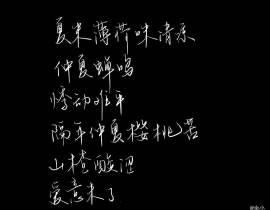 夏末薄荷味清凉
仲夏蝉鸣
悸动难平
隔年仲夏樱桃苦
山楂酸涩
爱意未了